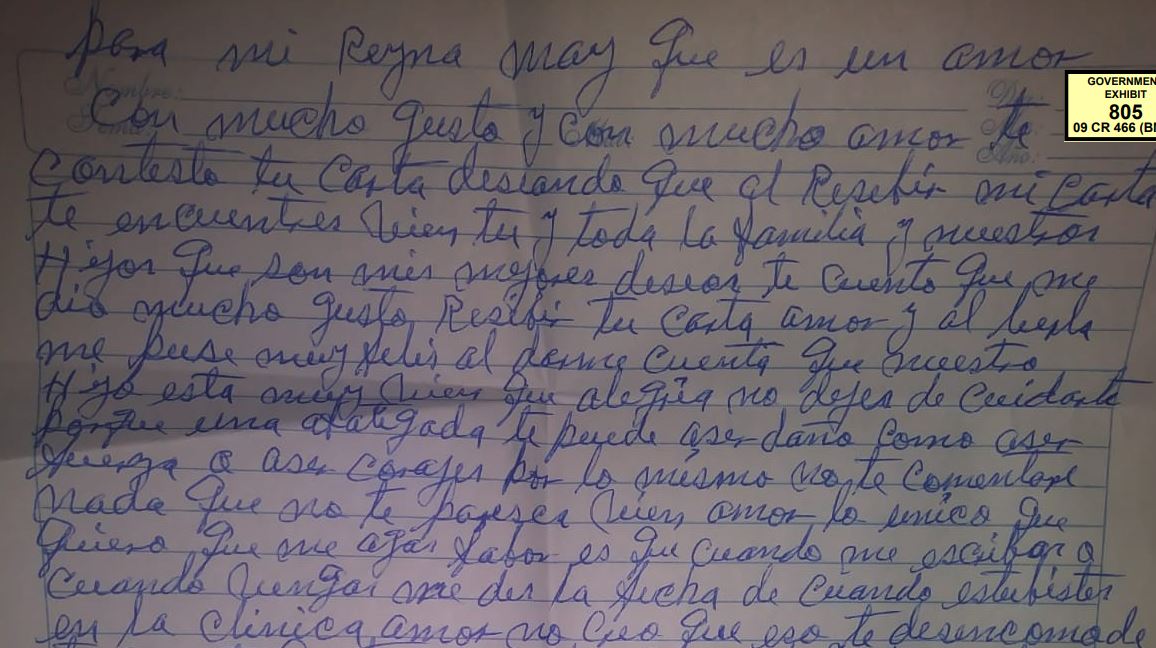 para mi Reyna may que es un amor
GOVERNMEN
EXHIBIT
805
09 CR 466 (B
Nombre:
Con mucho gusto y con mucho amor te
Año:
Contesto tu Carta deseando que al Resebir mi Carta
te encuentres vien tu y toda la familia y nuestros
Hijos que son mis mejores deseos te cuento que me
dio mucho gusto Resibir tu Carta amor y al leerla
me puse muy felis al darme cuenta que nuestro
Hijo esta muy vien que alegria no dejes de cuidarte
porque una te puede aser daño como aser
fuerza o aser corajes por lo mismo no te comentare
nada que no te paresca vien amor lo unico que
quiero que me agas fabor es que cuando me escribas o
cuando vengas me des la fecha de cuando estubistes
en la clinica amor no creo que eso te desincomode